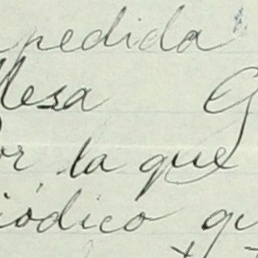 pedida
Mesa G
or la que
iódico qu